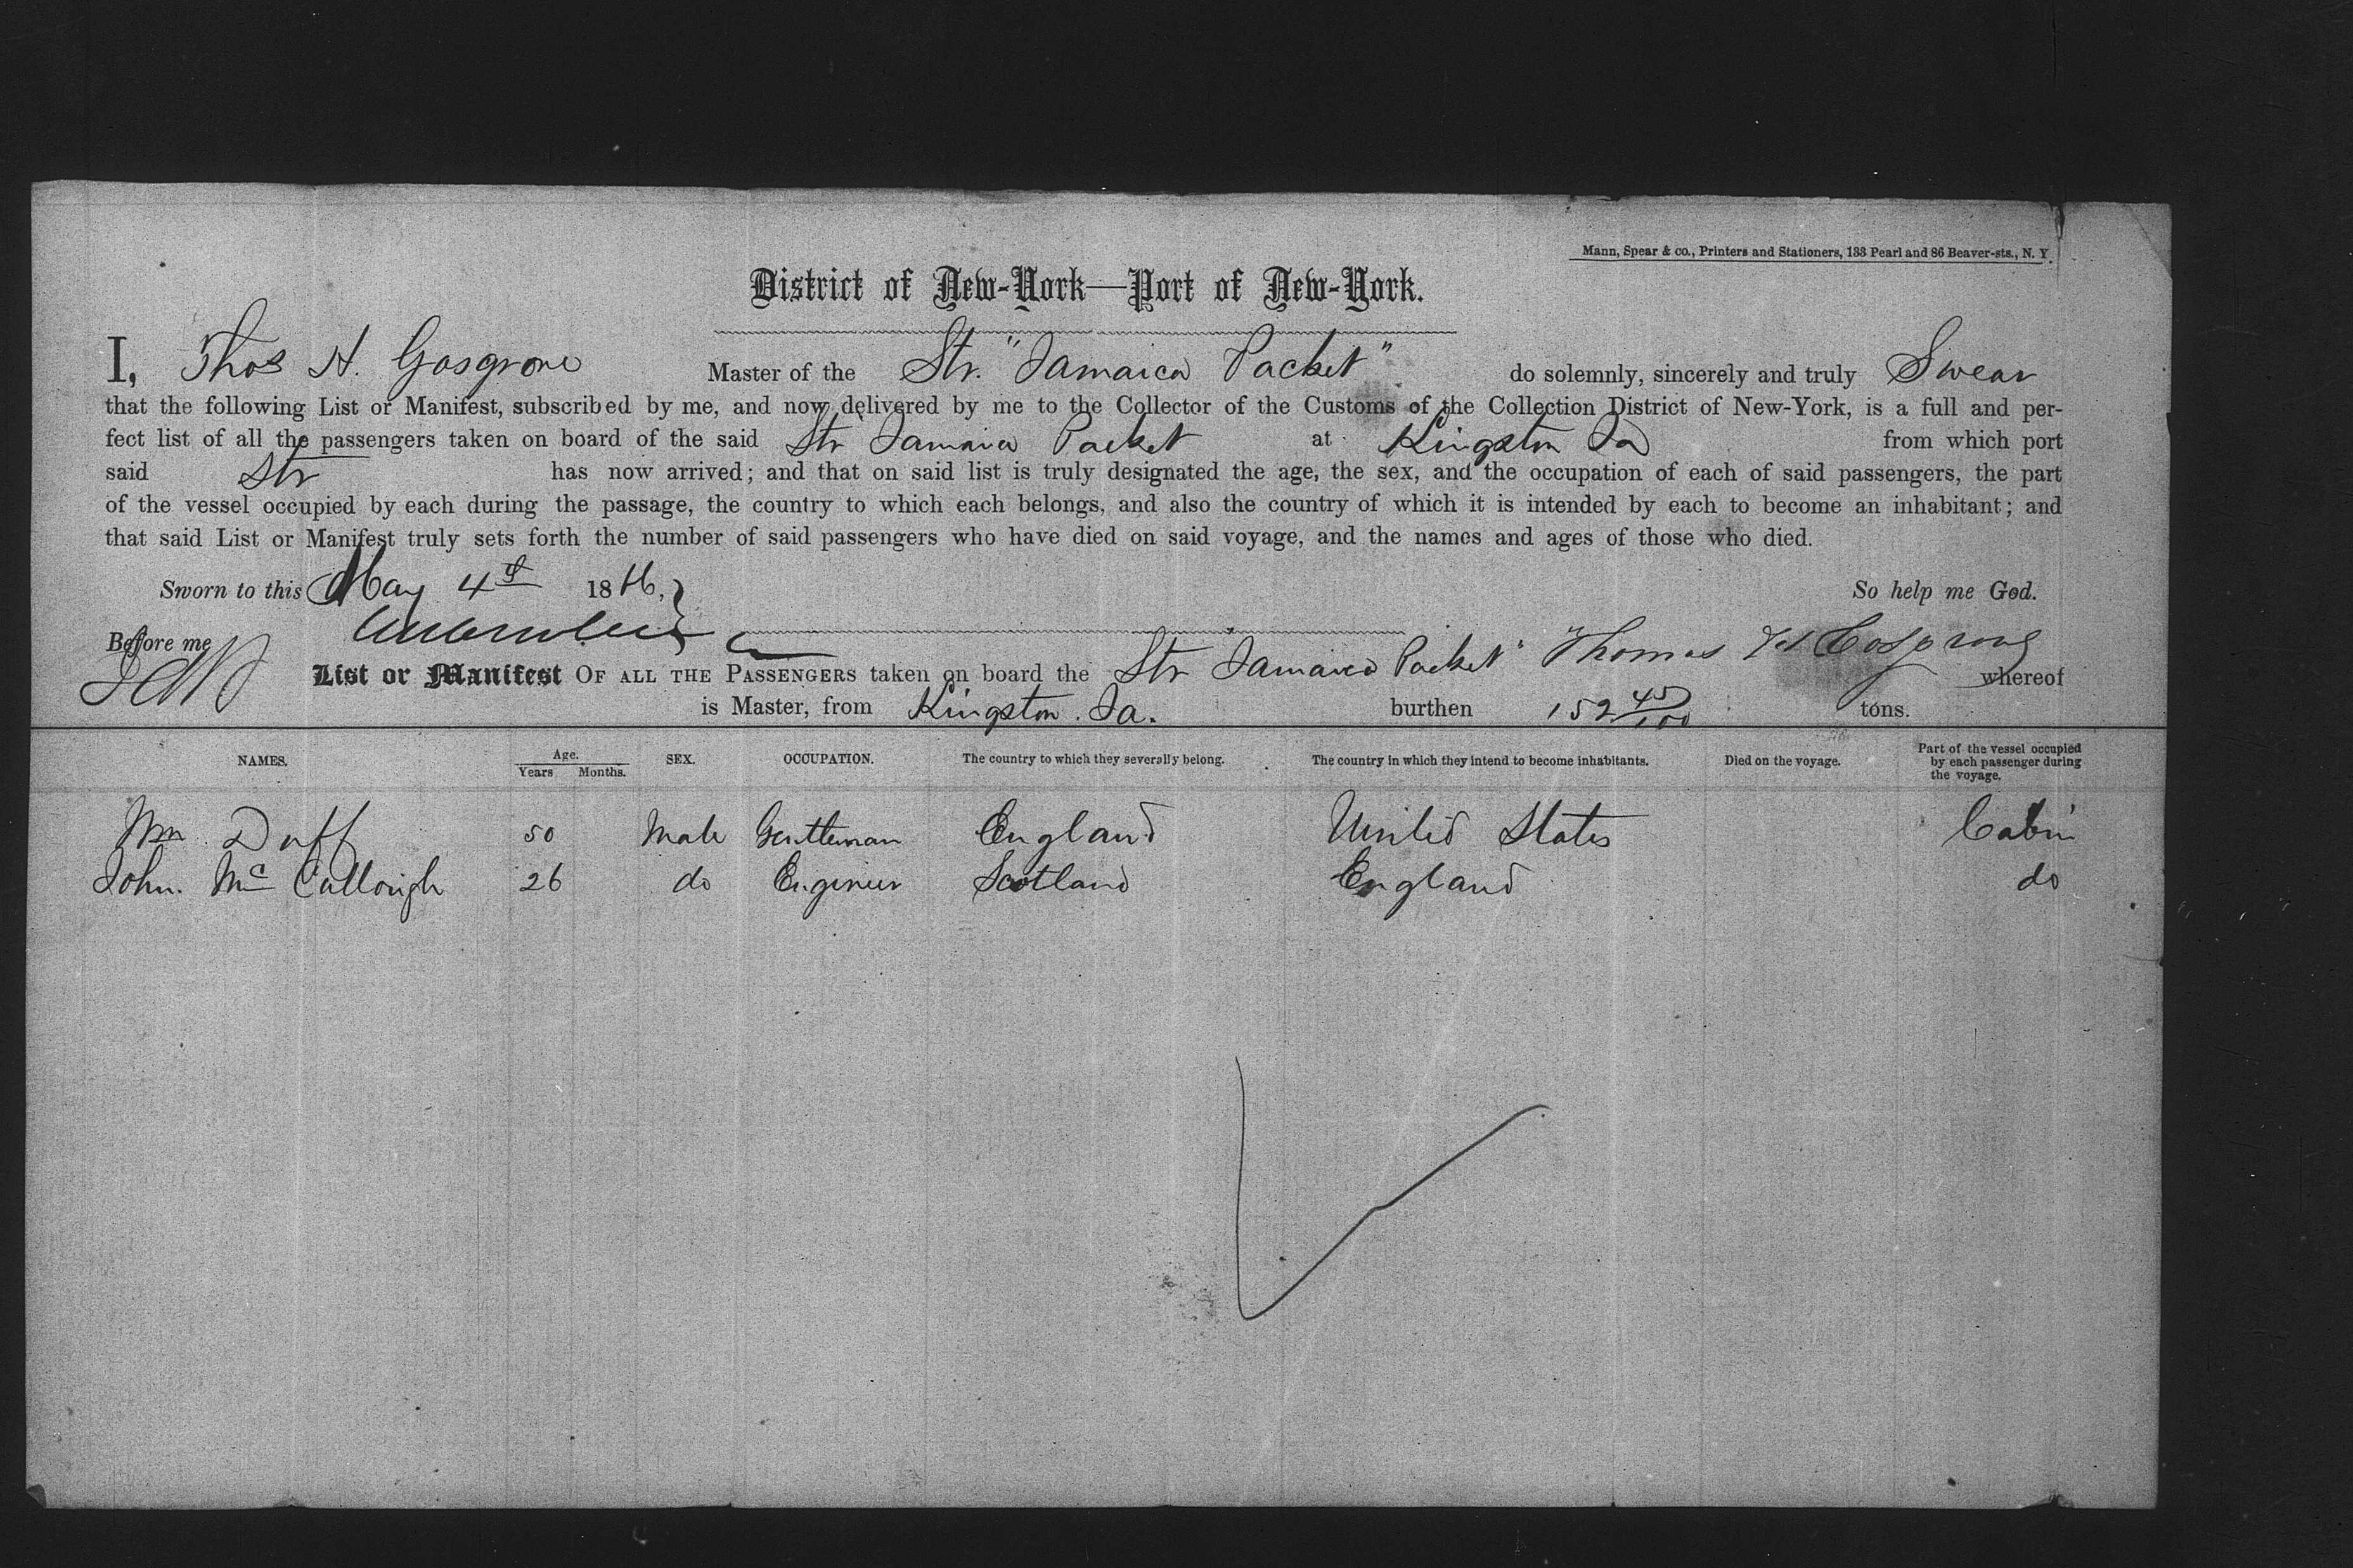 Mann, Spear & co., Printers and Stationers, 133 Pearl and 86 Beaver-sts., N. Y.
District of New-York—Port of New-York.
I, Thos H. Gosgrove Master of the Str. "Jamaica Packet" do solemnly, sincerely and truly Swear
that the following List or Manifest, subscribed by me, and now delivered by me to the Collector of the Customs of the Collection District of New-York, is a full and per-
fect list of all the passengers taken on board of the said Str Jamaica Packet at Kingston Ja from which port
said Str has now arrived; and that on said list is truly designated the age, the sex, and the occupation of each of said passengers, the part
of the vessel occupied by each during the passage, the country to which each belongs, and also the country of which it is intended by each to become an inhabitant; and
that said List or Manifest truly sets forth the number of said passengers who have died on said voyage, and the names and ages of those who died.
Sworn to this May 4th 1866, So help me God.
Before me
Thomas H Cosgrove
List or Manifest OF ALL THE PASSENGERS taken on board the Str Jamaica Packet" whereof
is Master, from Kingston. Ja. burthen 152 45/100 tons.
NAMES. Age. Years Months. SEX. OCCUPATION. The country to which they severally belong. The country in which they intend to become inhabitants. Died on the voyage. Part of the vessel occupied by each passenger during the voyage.
Wm. Duff 50 Male Gentleman England United States Cabin
John. Mc Cullough 26 do Engineer Scotland England do